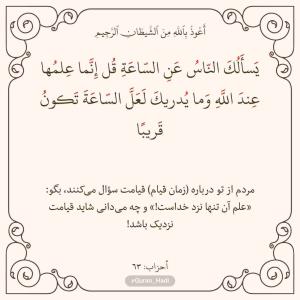 أَعُوذُ بِاللَّهِ مِنَ الشَّيْطَانِ الرَّجِيمِ
يَسأَلُكَ النّاسُ عَنِ السّاعَةِ قُل إِنَّما عِلمُها
عِندَ اللَّهِ وَما يُدريكَ لَعَلَّ السّاعَةَ تَكونُ
قَريبًا
مردم از تو درباره (زمان قیام) قیامت سؤال می‌کنند، بگو:
«علم آن تنها نزد خداست!» و چه می‌دانی شاید قیامت
نزدیک باشد!
احزاب: ۶۳
@Quran_Hadi